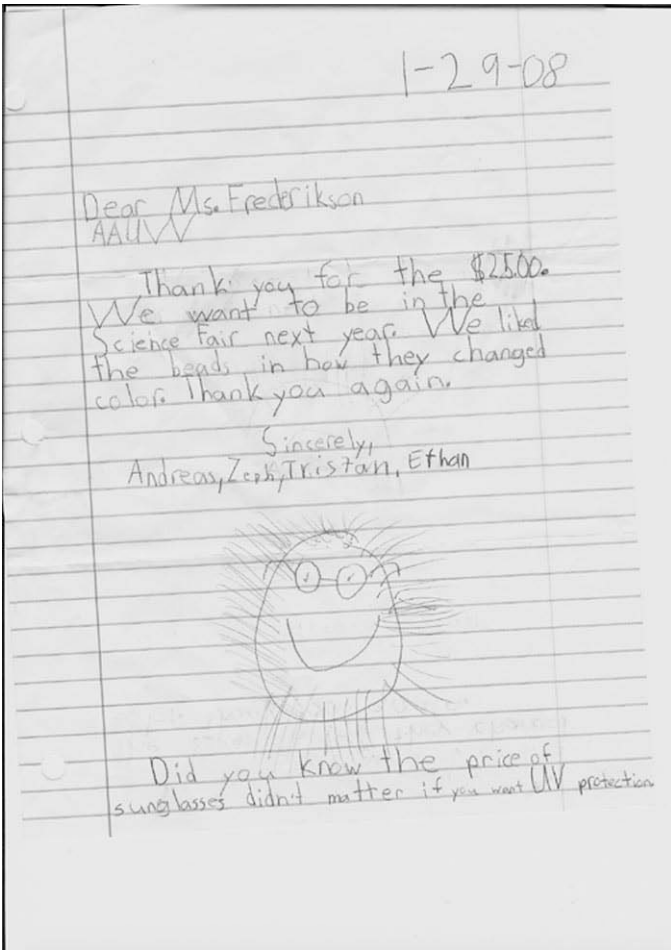 1-29-08
Dear Ms. Frederikson
AAUW
Thank you for the $25.00.
We want to be in the
Science Fair next year. We liked
the beads in how they changed
color. Thank you again.
Sincerely,
Andreas, Zeph, Tristan, Ethan
Did you know the price of
sunglasses didn't matter if you want UV protection